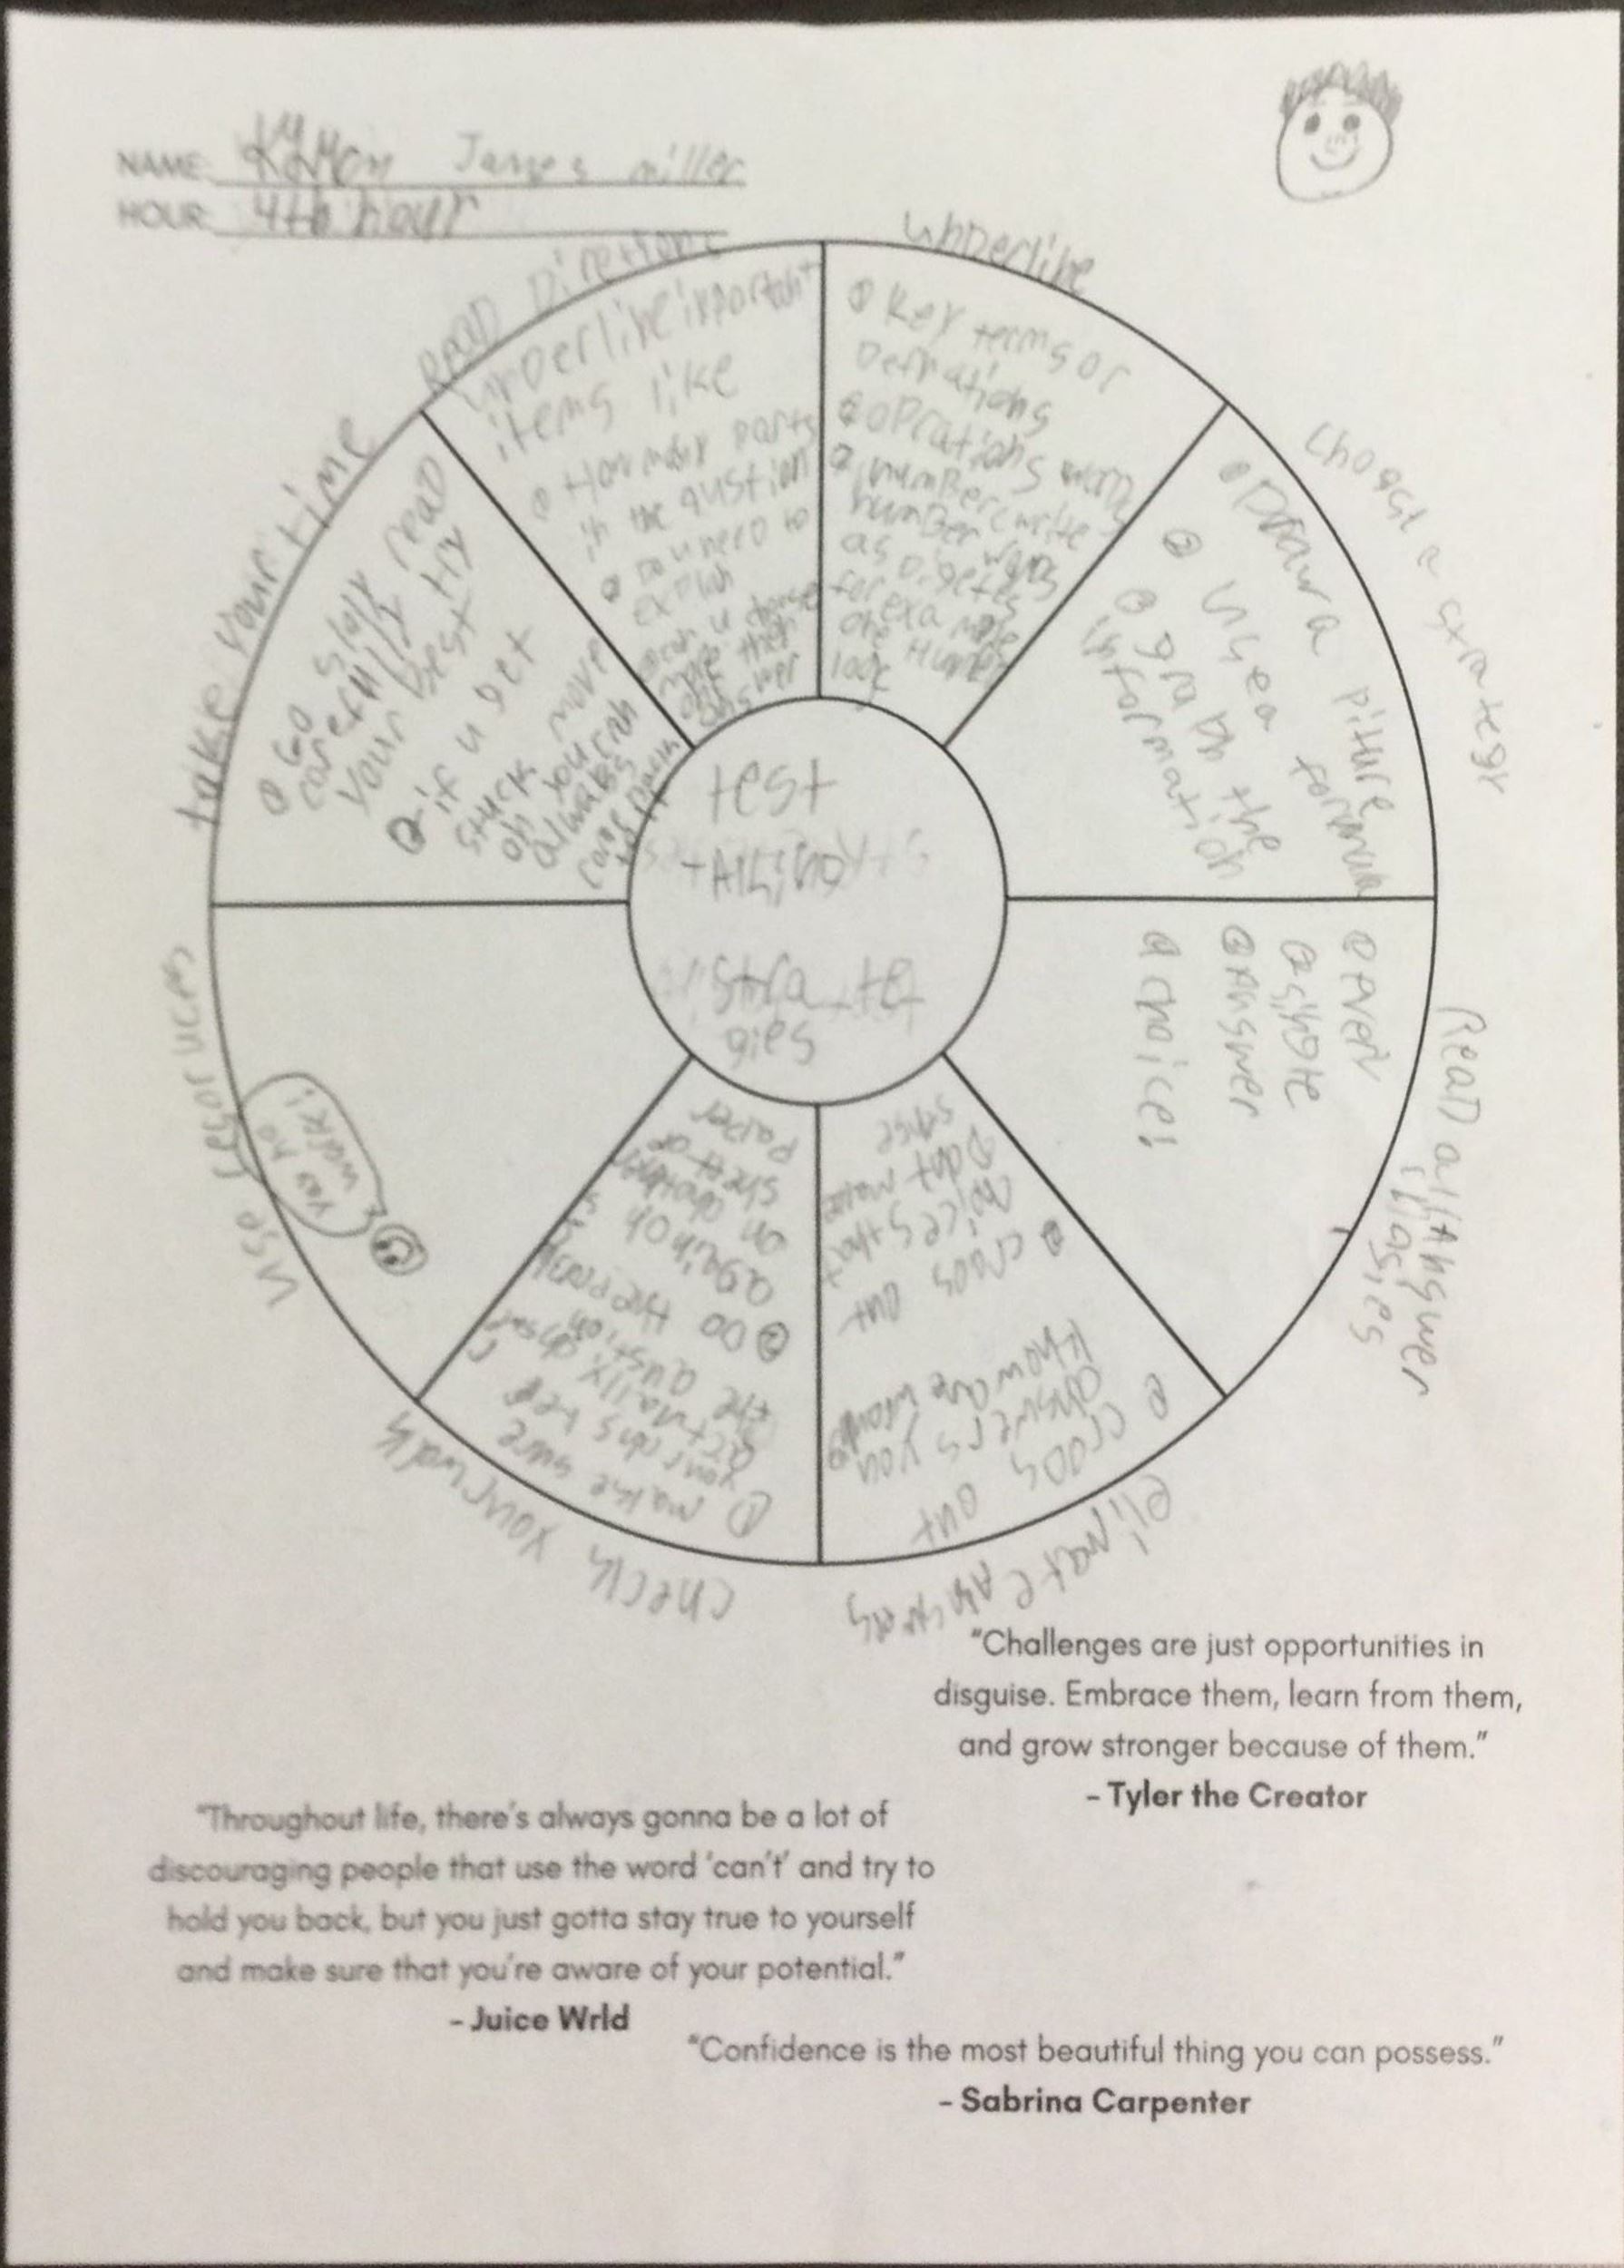 NAME: James miller
HOUR: 4th hour
READ Directions
unDerline important
items like
How many parts
in the qustion
Do u neeD to
explian
can u choose
more then
one
answer
unDerline
Key terms or
Defnations
oprations
numBer(write
numBer words
as Digetes
for example
one HunDreD
100
choose a strategy
Draw a piture
use a formula
graph the
information
ReaD all Answer
choices
even
answer
choice!
elimate Answers
cross out
answers you
know are wrong
cross out
choices that
Dont make
sense
check your work
make sure
your ans
actually answer
the qustion
Do the problem
again on
on another
sheet of
paper
use resources
yes no
take your time
Go sloly read
carefully try
your best
if u get
stuck move
on you can
always
come back
to it
test
tAking
strate
gies
"Challenges are just opportunities in
disguise. Embrace them, learn from them,
and grow stronger because of them."
- Tyler the Creator
"Throughout life, there's always gonna be a lot of
discouraging people that use the word 'can't' and try to
hold you back, but you just gotta stay true to yourself
and make sure that you're aware of your potential."
- Juice Wrld
"Confidence is the most beautiful thing you can possess."
- Sabrina Carpenter